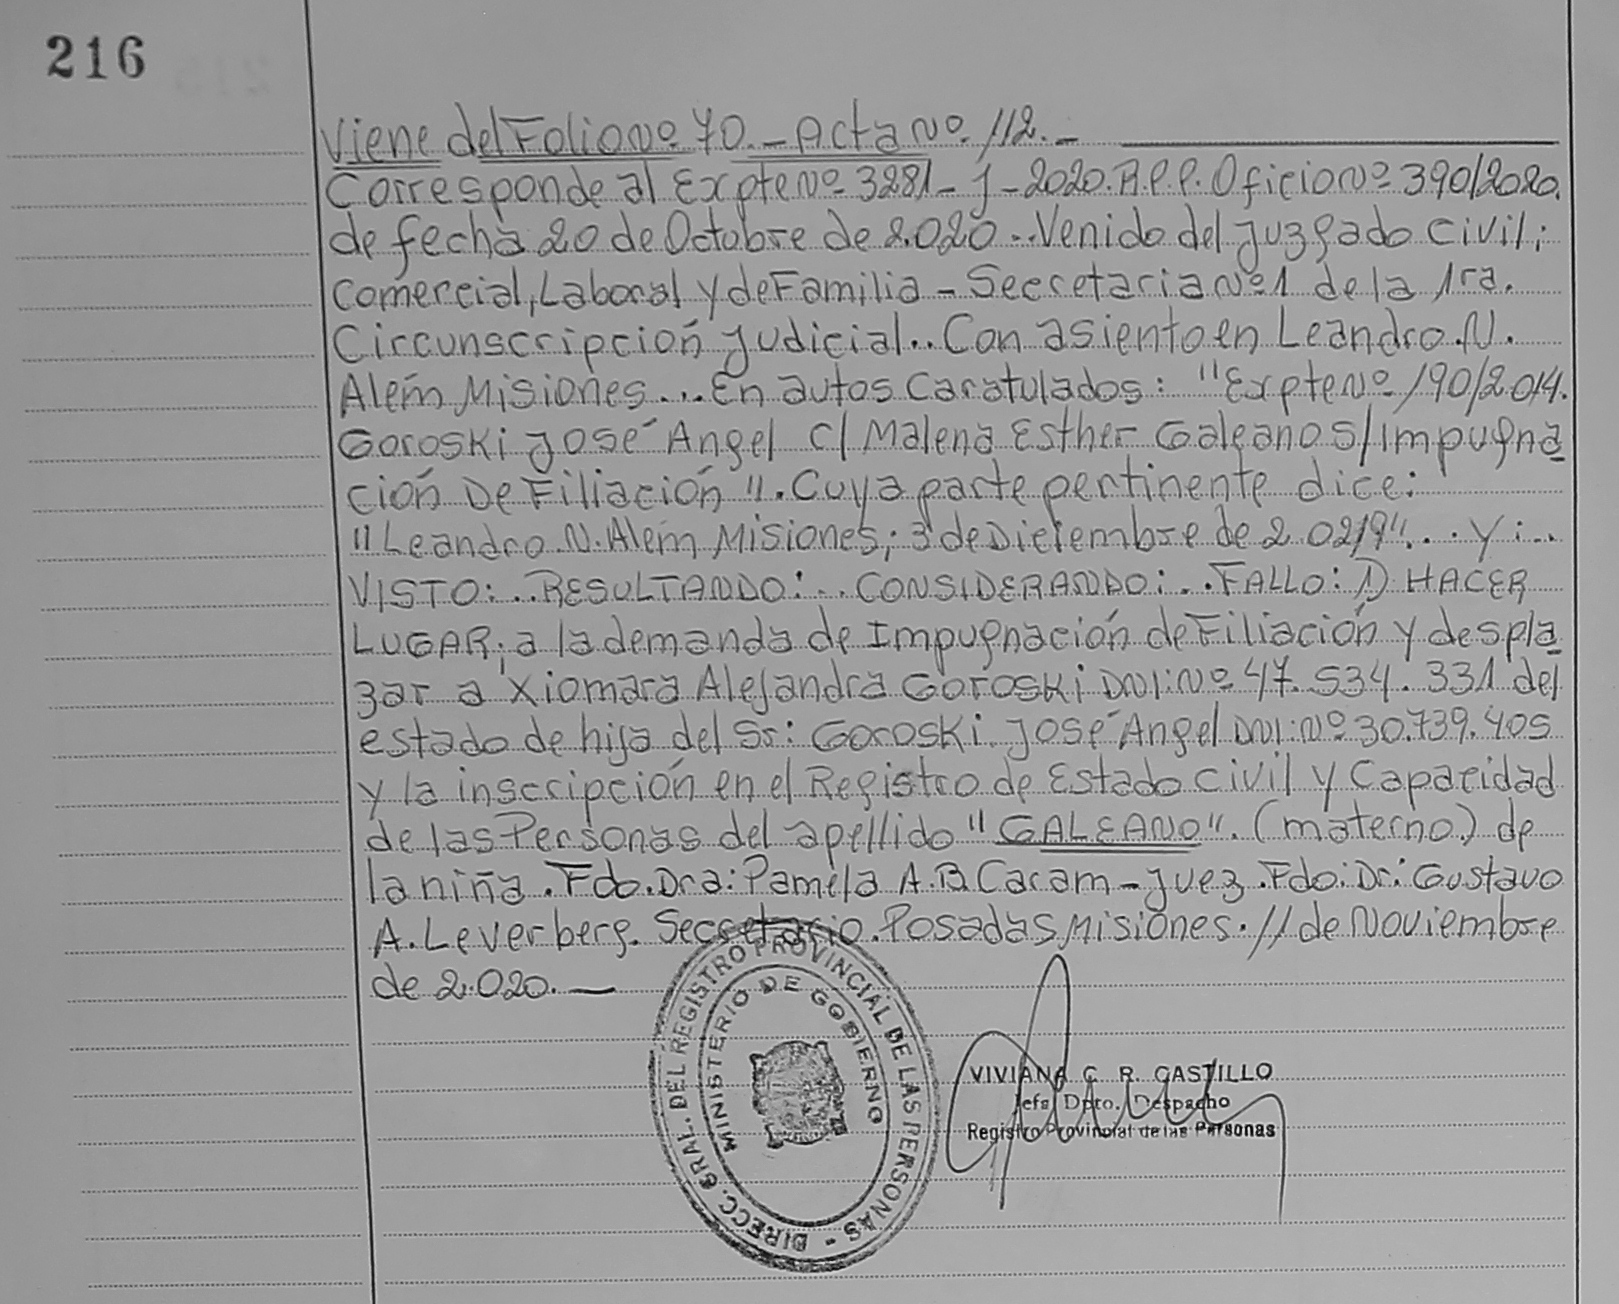 216
Viene del Folio Nº 70.- Acta Nº 112.-
Corresponde al Expte Nº 3281- J-2020. R.P.P. Oficio Nº 390/2020.
de fecha 20 de Octubre de 2.020..Venido del Juzgado Civil;
Comercial, Laboral y de Familia - Secretaria Nº 1 de la 1ra.
Circunscripción Judicial.. Con asiento en Leandro.N.
Alem Misiones... En autos Caratulados: "Expte Nº 190/2.014.
Goroski José Angel c/ Malena Esther Galeano S/ Impugna
ción De Filiación". Cuya parte pertinente dice:
"Leandro.N.Alem Misiones; 3 de Diciembre de 2.019"... Y:...
VISTO:..RESULTANDO:.. CONSIDERANDO:..FALLO: 1) HACER
LUGAR; a la demanda de Impugnación de Filiación y despla
zar a Xiomara Alejandra Goroski DNI:Nº 47.534.331 del
estado de hija del Sr: Goroski. José Angel DNI:Nº 30.739.405
y la inscripción en el Registro de Estado Civil y Capacidad
de las Personas del apellido "GALEANO". (materno.) de
la niña. Fdo. Dra: Pamela A.B Caram - Juez. Fdo: Dr: Gustavo
A. Leverberg. Secretario. Posadas Misiones. 11 de Noviembre
de 2.020.—
DIRECC. GRAL. DEL REGISTRO PROVINCIAL DE LAS PERSONAS -
MINISTERIO DE GOBIERNO
VIVIANA C. R. CASTILLO
Jefa Dpto. Despacho
Registro Provincial de las Personas